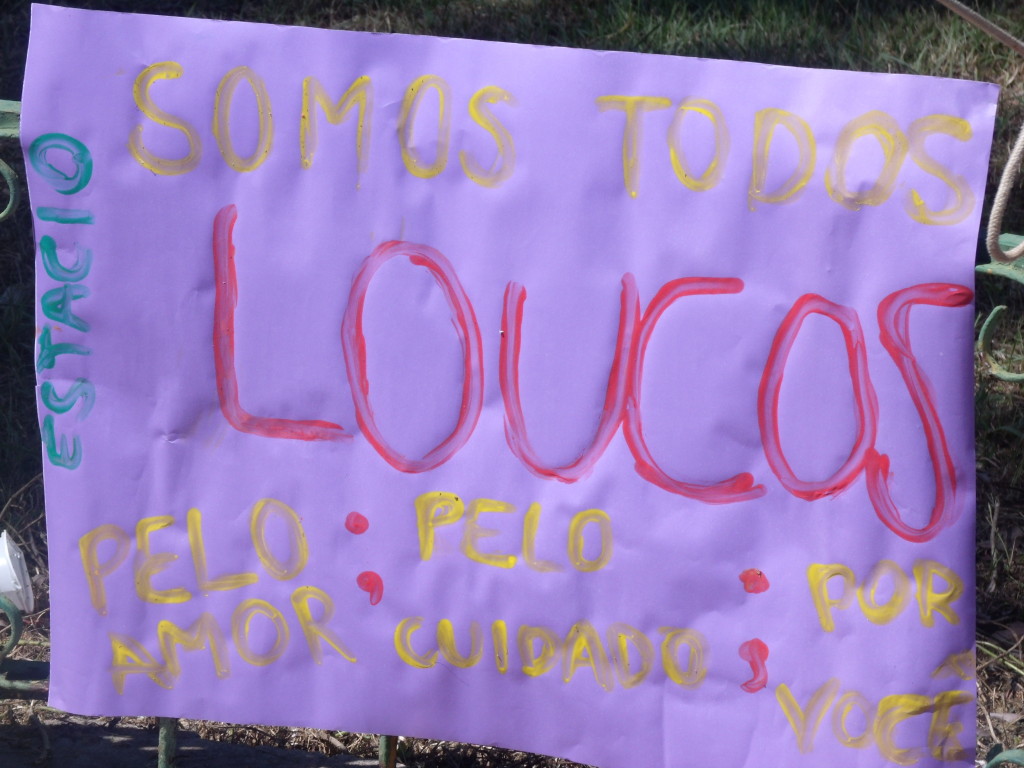 ESTACIO
SOMOS TODOS
LOUCOS
PELO AMOR ; PELO CUIDADO ; POR VOCÊ